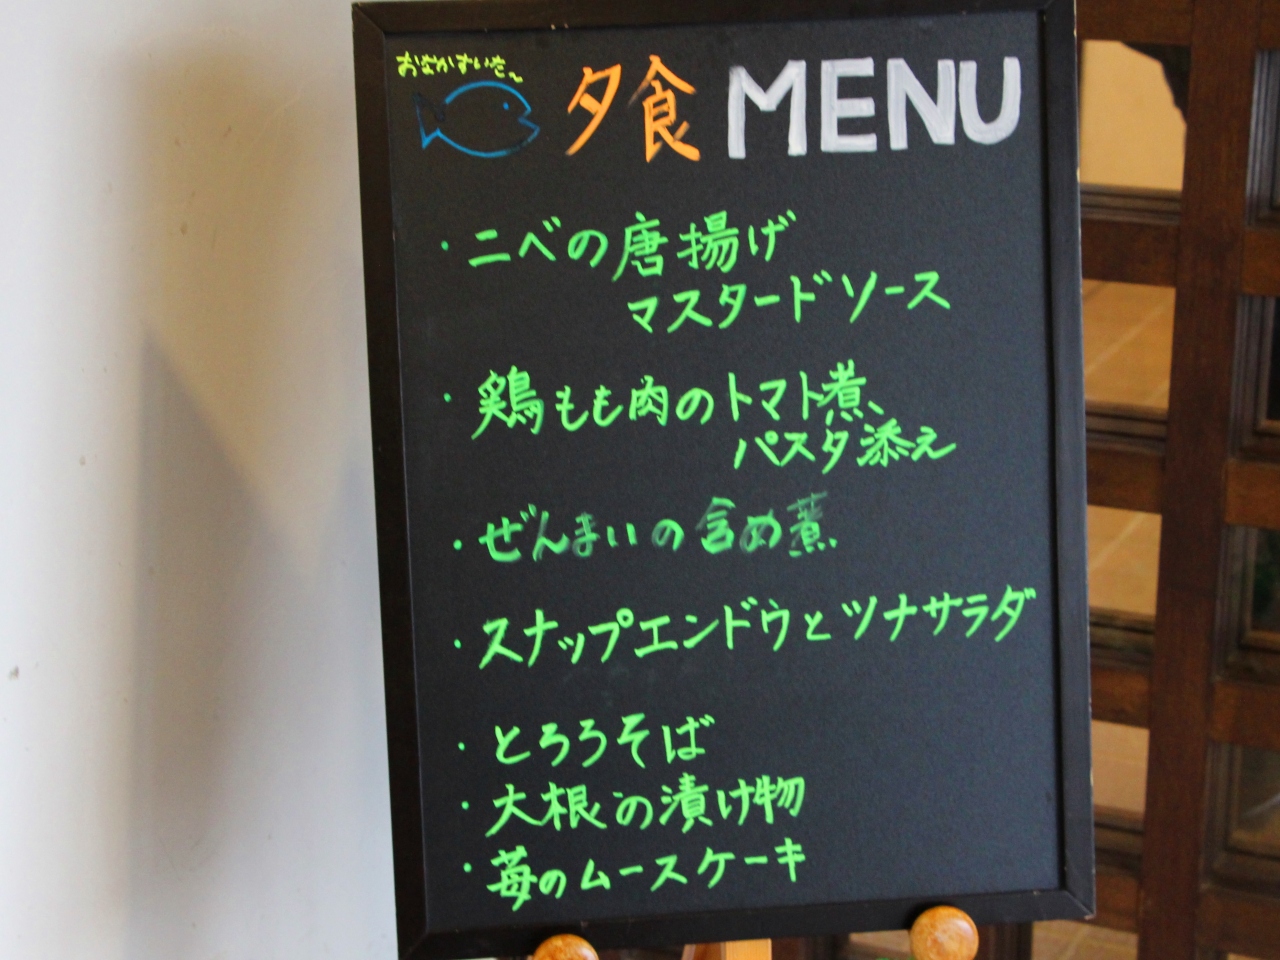 おなかすいた~
夕食 MENU
・ニベの唐揚げ
マスタードソース
・鶏もも肉のトマト煮、
パスタ添え
・ぜんまいの含め煮
・スナップエンドウとツナサラダ
・とろろそば
・大根の漬け物
・苺のムースケーキ